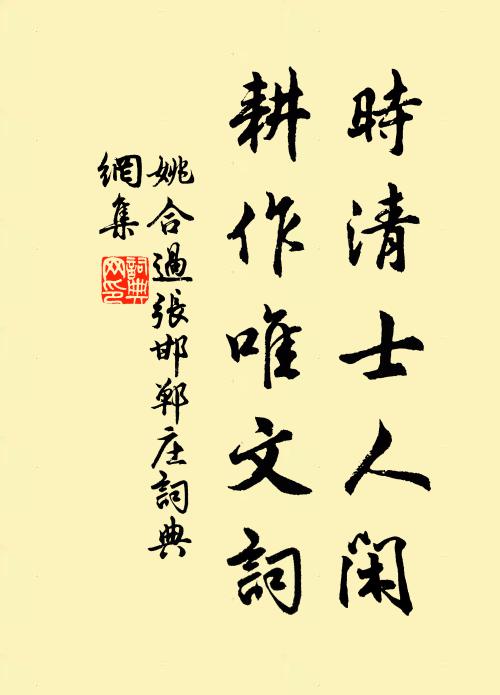 時清士人閑
耕作唯文詞
姚合過張邯鄲庄詞典
網集
詞典
网印